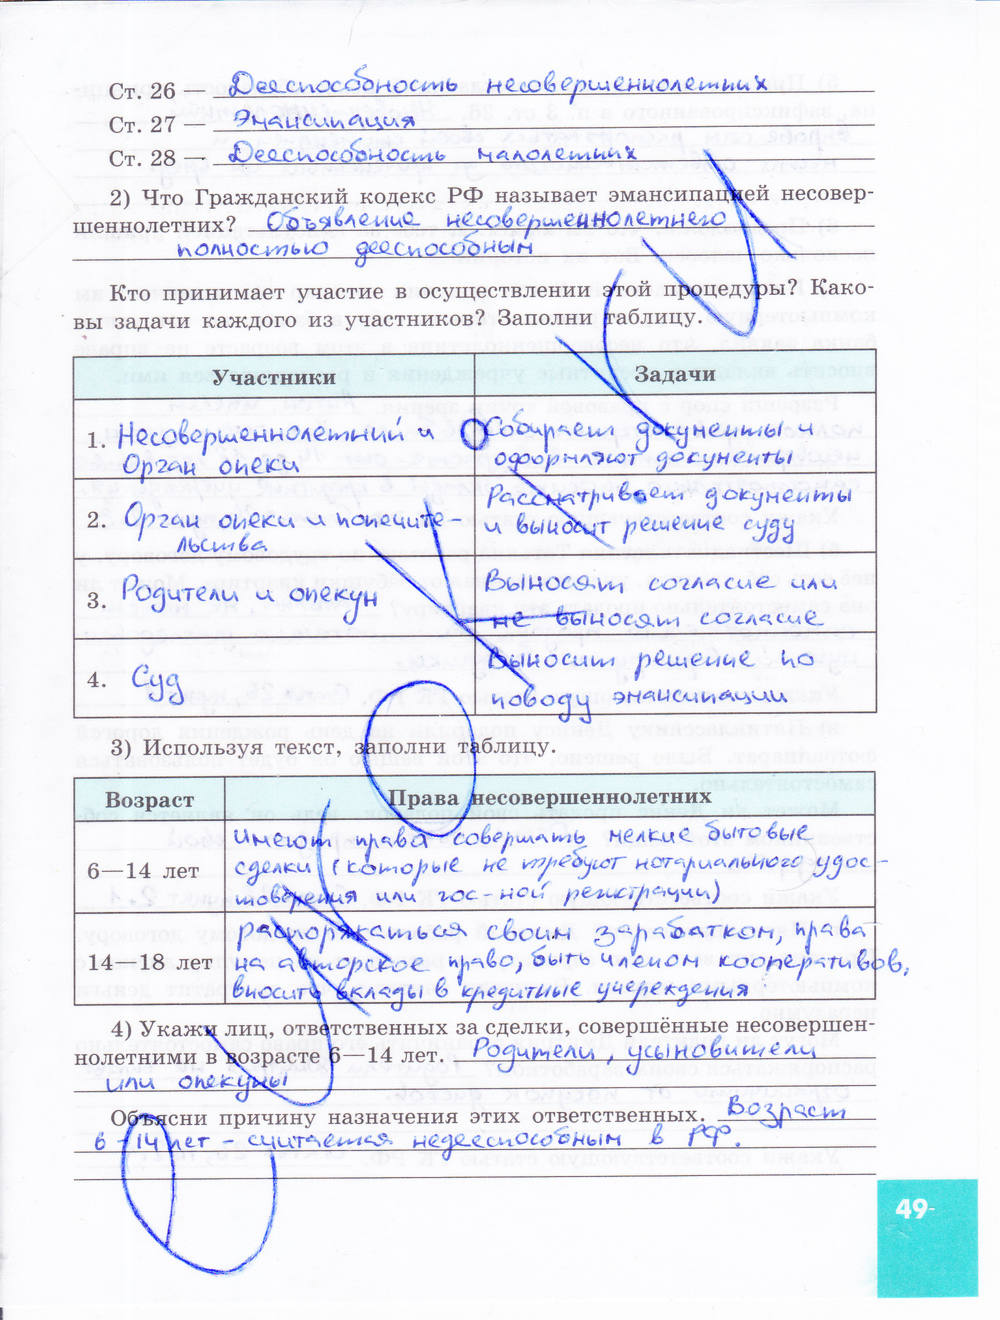 Ст. 26 — Дееспособность несовершеннолетних
Ст. 27 — Эмансипация
Ст. 28 — Дееспособность малолетних
2) Что Гражданский кодекс РФ называет эмансипацией несовер-
шеннолетних? Объявление несовершеннолетнего
полностью дееспособным
Кто принимает участие в осуществлении этой процедуры? Како-
вы задачи каждого из участников? Заполни таблицу.
Участники Задачи
1. Несовершеннолетний и Собирает документы и
Орган опеки оформляют документы
2. Орган опеки и попечите- Рассматривает документы
льства и выносит решение суду
3. Родители и опекун Выносят согласие или
не выносят согласие
4. Суд Выносит решение по
поводу эмансипации
3) Используя текст, заполни таблицу.
Возраст Права несовершеннолетних
6—14 лет имеют права совершать мелкие бытовые
сделки (которые не требуют нотариального удос-
товерения или гос-ной регистрации)
14—18 лет распоряжаться своим заработком, права
на авторское право, быть членом кооперативов,
вносить вклады в кредитные учереждения
4) Укажи лиц, ответственных за сделки, совершённые несовершен-
нолетними в возрасте 6—14 лет. Родители, усыновители
или опекуны
Объясни причину назначения этих ответственных. Возраст
6-14 лет - считается недееспособным в РФ.
49